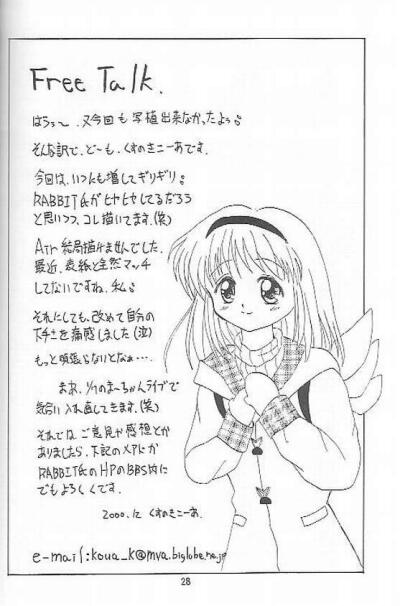 Free Talk.
はうぅ〜、又今回も写植出来なかったよぅ。
そんな訳で、ど〜も、くすのきこーあです。
今回は、いつにも増してギリギリ。
RABBIT氏がヒヤヒヤしてるだろう
と思いつつ、コレ描いてます。(笑)
Air 結局描けませんでした。
最近、表紙と全然マッチ
してないですね、私。
それにしても、改めて自分の
下手さを痛感しました(泣)
もっと頑張らないとなぁ・・・。
まあ、1/7のまーちゃんライブで
気合い入れ直してきます。(笑)
それでは、ご意見か感想とか
ありましたら、下記のメアドか
RABBIT氏のHPのBBS
にでもよろしくです。
2000.12 くすのきこーあ.
e-mail:koua_k@mva.biglobe.ne.jp
28